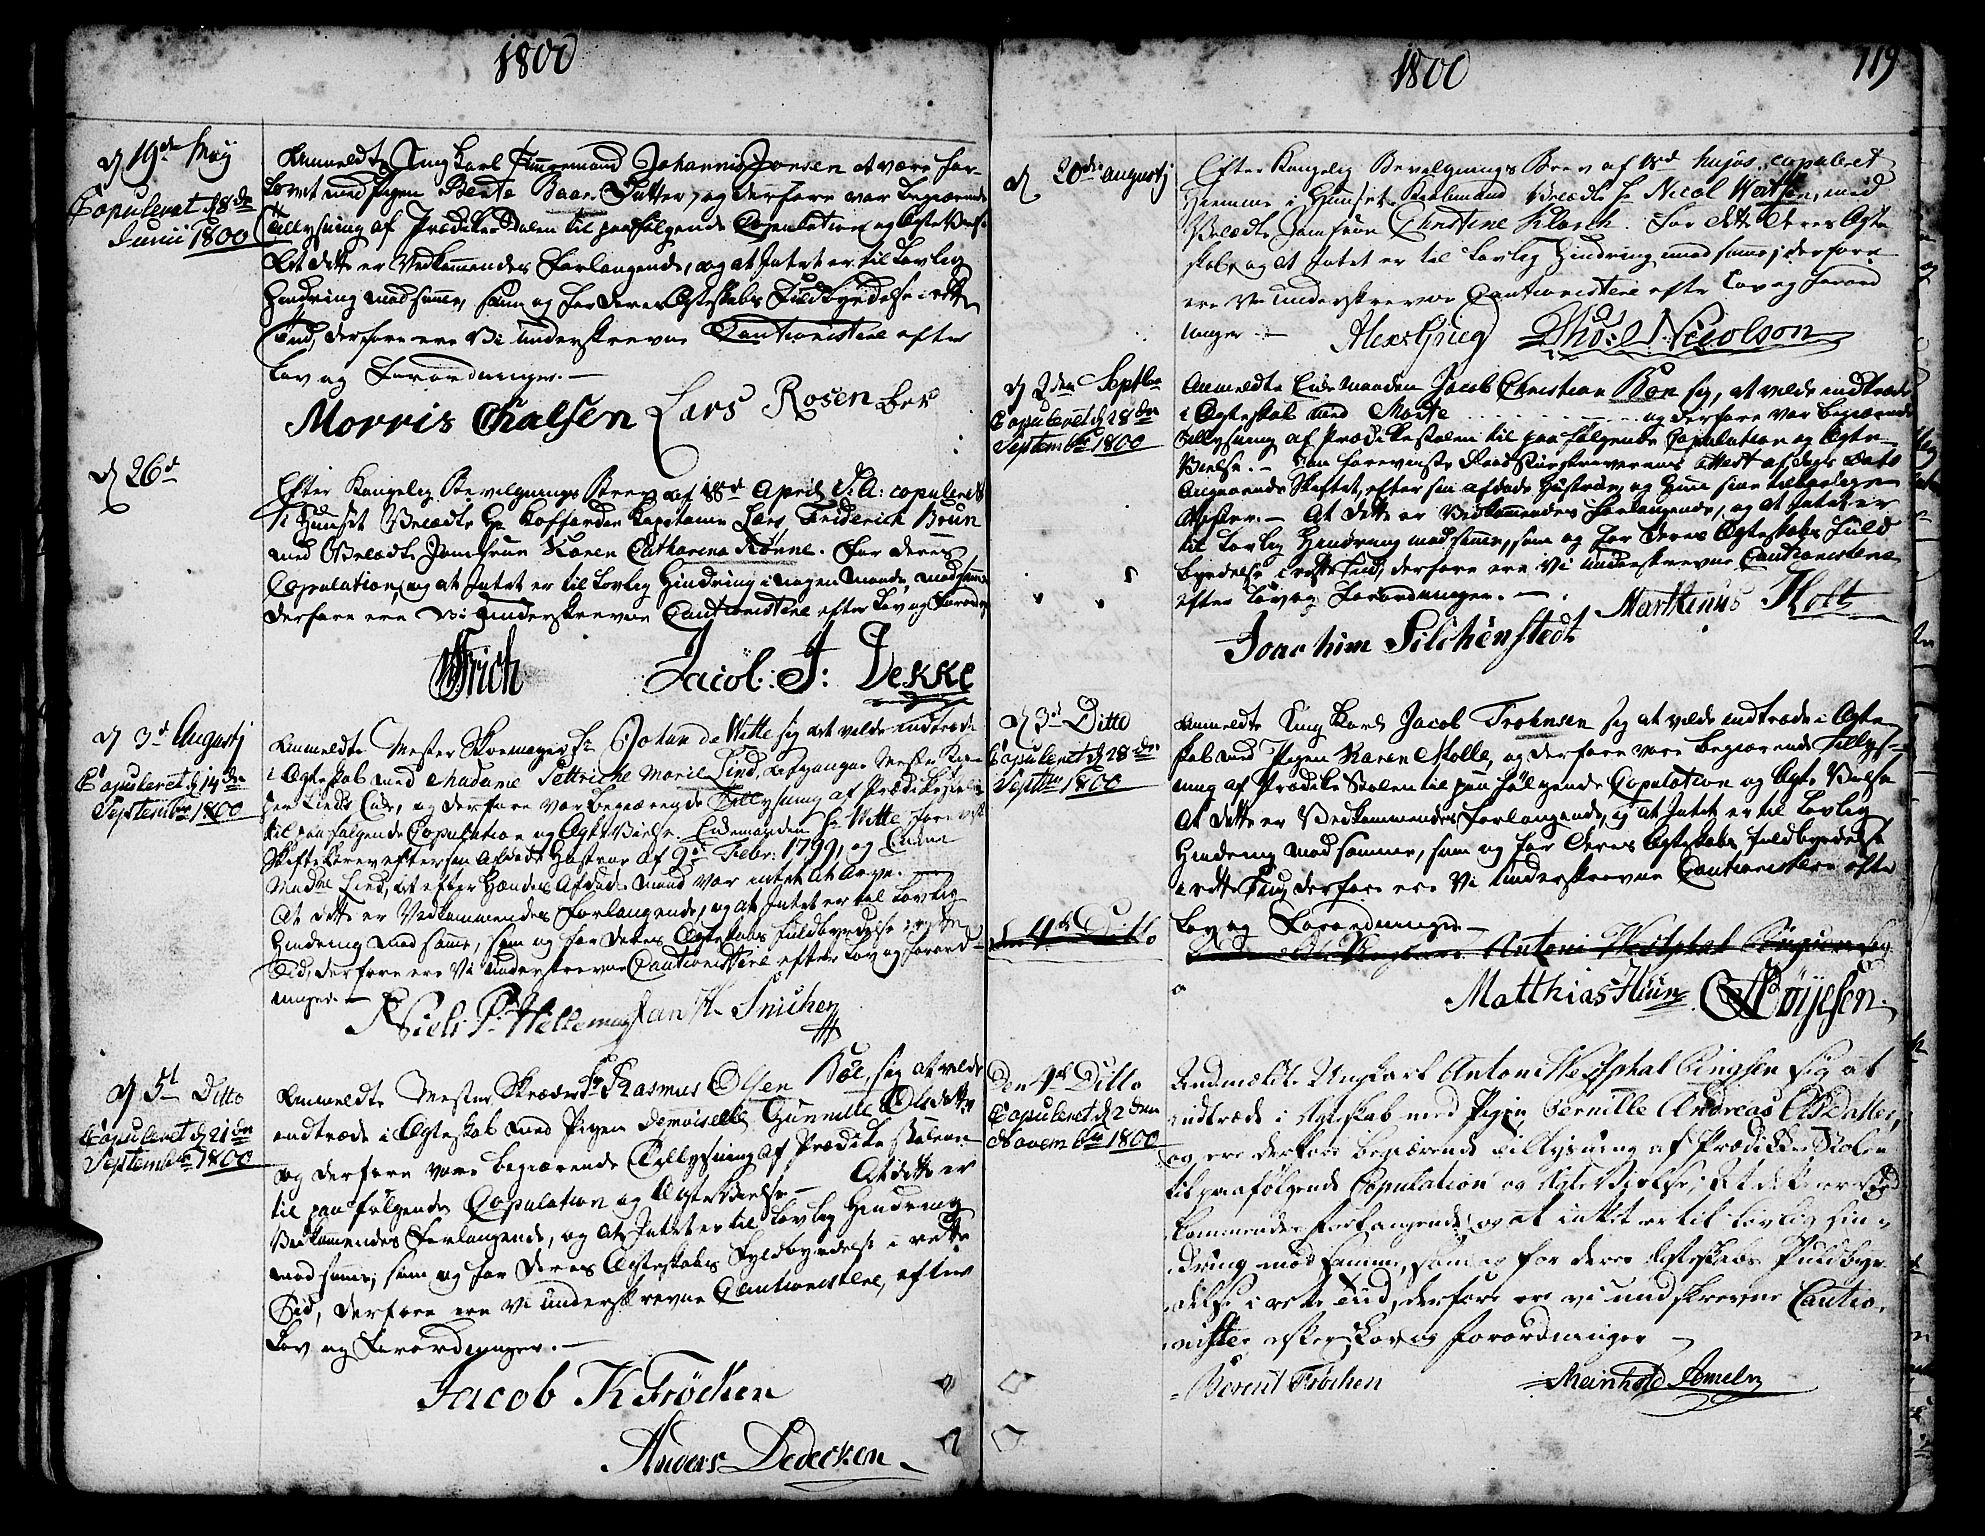 1800
d 19de Maij
Copuleret d 8de
Junii 1800
Anmeldte Ung Karl Tømremand Johannis Jonsen at være for-
lovet med Pigen Berte Baars Datter, og derfore var begiærende
Tillysning af Prædikestolen til paafølgende Copulation og Ægte Viel-
At dette er Vedkommendes Forlangende, og at Intet er til Lovlig
Hindring mod samme, som og for deres Ægteskabs Fuldbyrdelse i rette
Tiid, derfore ere Vi underskrevne Cautionistere efter
Lov og Forordninger.—
Morris Chalsen Lars Rosenber
d 26d
Efter Kongelig Bevilgnings Brev af 18d April d: A: copuleret
i Huuset Velædle Hr Koffardie Kapitaine Lars Friderich Bruun
med Velædle Jomfrue Karen Catharina Rønne. For deres
Copulation, og at Intet er til Lovlig Hindring i nogen Maade, mod samme
derfore ere Vi underskrevne Cautionistere efter Lov og Forordn
Frich Jacob: J: Dekke
d 3d Augustj
Copuleret d 14de
Septembr 1800
Anmeldte Mester Skomager Hr Johan de Witte sig at vilde indtræde
i Ægteskab med Madame Petricke Marie Lind,
Linds Enke, og derfore var begiærende Tillysning af Prædikestolen
til paafølgende Copulation og Ægte Vielse. Enkemanden Hr Witte foreviiste
Skiftebrev efter sin Afdøde Hustrue af 9d Febr: 1799, og Enken
Madme Lind, at efter Hendes Afdøde Mand var intet at Arve.—
At dette er Vedkommendes Forlangende, og at Intet er til Lovlig
Hindring mod samme, som og for deres Ægteskabs Fuldbyrdelse i rette
Tiid, derfore ere Vi underskrevne Cautionistere efter Lov og Forord-
ninger.—
Niels P: Welleman Jan H. Snichen
d 5t Ditto
Copuleret d 21de
Septembr 1800
Anmeldte Mester Skræder Sr Rasmus Olsen Böe, sig at vilde
indtræde i Ægteskab med Pigen Demoiselle Gunnille Olsdatter
og derfore vare begiærende Tillysning af Prædikestolen
til paafølgende Copulation og Ægte Vielse.— At dette er
Vedkommendes Forlangende, og at Intet er til Lovlig Hindring
mod samme, som og for deres Ægteskabs Fyldbyrdelse i rette
Tid, derfore ere Vi underskrevne Cautionistere, efter
Lov og Forordninger.—
Jacob K Fröchen
Anders Dedecken
1800
119
d 20de augustj
Efter Kongelig Bevilgnings Brev af hujus, copuleret
hiemme i Huuset Velædle Hr Nicol med
Velædle Jomfrue Christine Klosch. For dette deres Ægte
skab, og at Intet er til Lovlig Hindring mod samme, derfore
ere Vi underskrevne Cautionistere efter Lov og Forord
ninger.—
Alexr Grieg Tho: Nicolson
d 2den Septbr
Copuleret d 28de
Septembr 1800
Anmeldte Enkemanden Jacob Christian Bøn sig, at vilde indtræde
i Ægteskab med Marte og derfore var begiærende
Tillysning af Prædikestolen til paafølgende Copulation og Ægte-
Vielse.— Han foreviiste Raadstueskriverens Attest af dags Dato
Angaaende Skiftet, efter sin afdøde Hustrue, og Hun sine
Attester.— At dette er Vedkommendes Forlangende, og at Intet er
til Lovlig Hindring mod samme, som og for deres Ægteskabs Fuld
byrdelse i rette Tiid, derfore ere Vi underskrevne Cautionistere
efter Lov og Forordninger.—
Marthinus Holtz
Joachim Silchenstedt
d 3d Ditto
Copuleret d 28de
Septbr 1800
Anmeldte Ung Karl Jacob Trohnsen sig at vilde indtræde i Ægte-
skab med Pigen Karen Molle, og derfore vare begiærende Tillys-
ning af Prædike Stolen til paa følgende Copulation og Ægte Vielse
At dette er Vedkommendes Forlangende, og at Intet er til Lovlig
Hindring mod samme, som og for deres Ægteskabs Fuldbyrdelse
i rette Tiid, derfore ere Vi underskrevne Cautionistere efter
Lov og Forordninger.—
den 4de Ditto
Antoni Westphal
Matthias Huun Böijesen.
Den 4de Ditto
Copuleret d 2den
Novembr 1800
Andmældte Ungkarl Antoni Westphal Ringsen sig at
indtræde i Ægteskab med Pigen Pernille Andreas Datter,
og ere derfore begiærende Tillysning af Prædikke Stolen
til paafølgende Copulation og Ægte Vielse; At dette er Ved
kommendes forlangende, og at intet er til Lovlig Hin-
dring mod samme, som og for deres Ægteskabs Fuldbyr-
delse i rette Tiid, derfore ere vi undskrevne Cautio-
nister efter Lov og forordninger —
Berent Fröchen Meinhold Ameln